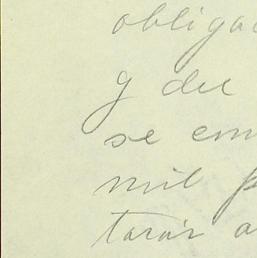 obligac
y del
se com
mil p
tarár a